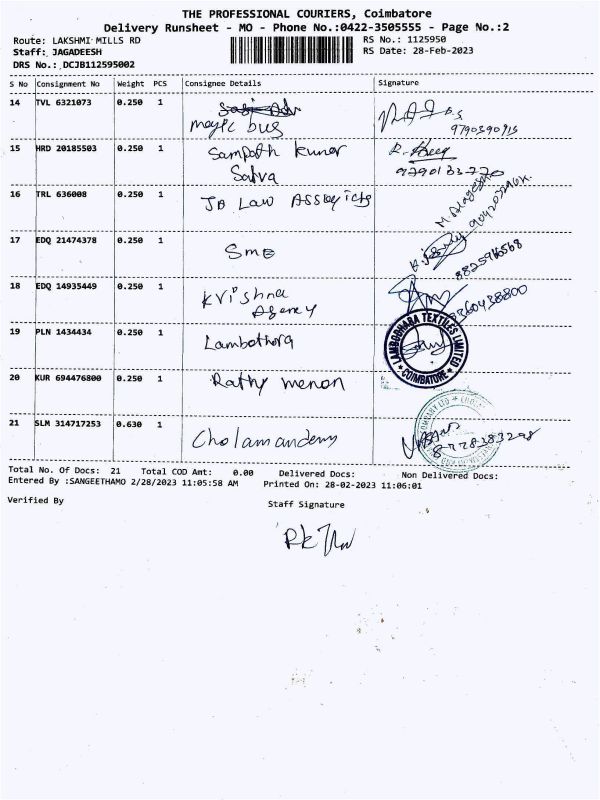 THE PROFESSIONAL COURIERS, Coimbatore
Delivery Runsheet - MO - Phone No.:0422-3505555 - Page No.:2
Route: LAKSHMI MILLS RD
RS No.: 1125950
Staff: JAGADEESH
RS Date: 28-Feb-2023
DRS No.: DCJB112595002
S No Consignment No Weight PCS Consignee Details Signature
14 TVL 6321073 0.250 1
magic bus
9790590915
15 HRD 20185503 0.250 1 Sampath kumar
Salva
9790133770
16 TRL 636008 0.250 1 JB Law Associcts
17 EDQ 21474378 0.250 1 SME
8825946568
18 EDQ 14935449 0.250 1 Krishna
Agency
8860438800
19 PLN 1434434 0.250 1 Lambothora
LAMBODHARA TEXTILES LIMITED
* COIMBATORE *
20 KUR 694476800 0.250 1 Rathy menon
21 SLM 314717253 0.630 1 Cholamandems
8778383298
Total No. Of Docs: 21 Total COD Amt: 0.00 Delivered Docs: Non Delivered Docs:
Entered By :SANGEETHAMO 2/28/2023 11:05:58 AM Printed On: 28-02-2023 11:06:01
Verified By Staff Signature